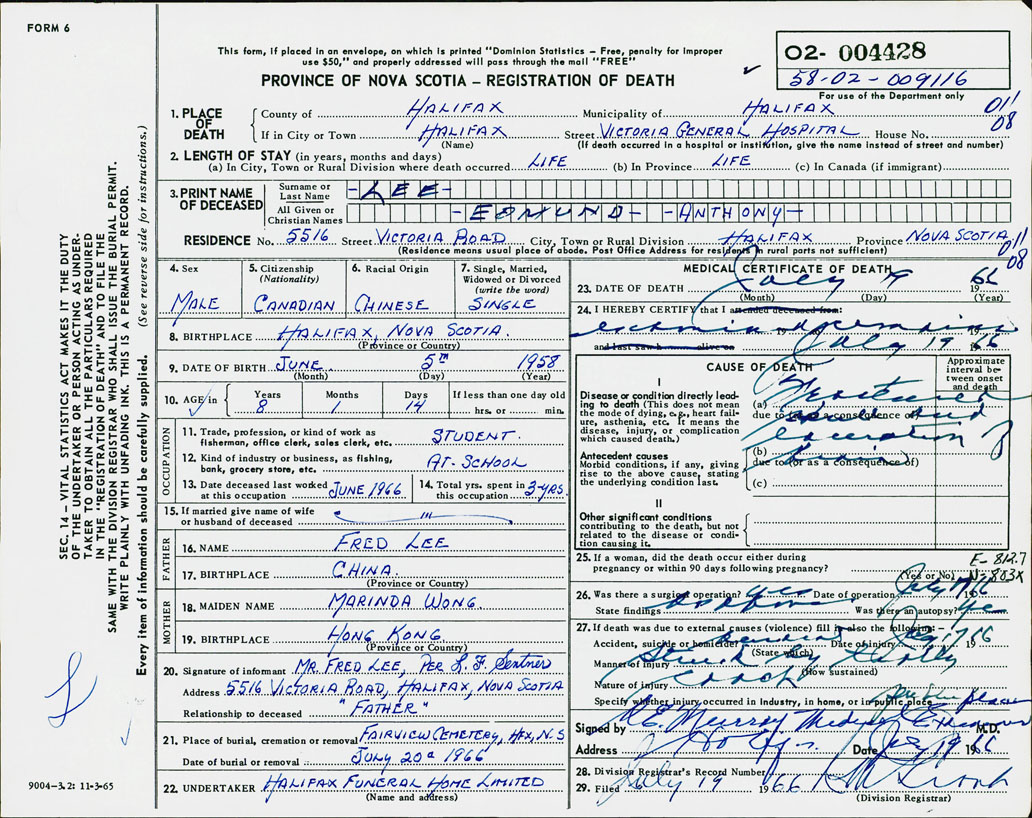 FORM 6
This form, if placed in an envelope, on which is printed "Dominion Statistics – Free, penalty for improper
use $50," and properly addressed will pass through the mail "FREE"
PROVINCE OF NOVA SCOTIA – REGISTRATION OF DEATH
O2- 004428
58-02-009116
For use of the Department only
011
08
1. PLACE OF DEATH
County of HALIFAX Municipality of HALIFAX
If in City or Town HALIFAX Street VICTORIA GENERAL HOSPITAL House No.
(Name) (If death occurred in a hospital or institution, give the name instead of street and number)
2. LENGTH OF STAY (in years, months and days)
(a) In City, Town or Rural Division where death occurred LIFE (b) In Province LIFE (c) In Canada (if immigrant)
3. PRINT NAME OF DECEASED
Surname or Last Name -LEE-
All Given or Christian Names -EDMUND- -ANTHONY-
RESIDENCE No. 5516 Street VICTORIA ROAD City, Town or Rural Division HALIFAX Province NOVA SCOTIA
(Residence means usual place of abode. Post Office Address for residents in rural parts not sufficient)
011
08
4. Sex
MALE
5. Citizenship (Nationality)
CANADIAN
6. Racial Origin
CHINESE
7. Single, Married, Widowed or Divorced (write the word)
SINGLE
8. BIRTHPLACE HALIFAX, NOVA SCOTIA.
(Province or Country)
9. DATE OF BIRTH JUNE 5th 1958
(Month) (Day) (Year)
10. AGE in
Years 8
Months 1
Days 14
If less than one day old
hrs. or min.
OCCUPATION
11. Trade, profession, or kind of work as
fisherman, office clerk, sales clerk, etc. STUDENT.
12. Kind of industry or business, as fishing,
bank, grocery store, etc. AT-SCHOOL
13. Date deceased last worked
at this occupation JUNE 1966
14. Total yrs. spent in
this occupation 3-YRS.
15. If married give name of wife
or husband of deceased
FATHER
16. NAME FRED LEE
17. BIRTHPLACE CHINA.
(Province or Country)
MOTHER
18. MAIDEN NAME MARINDA WONG.
19. BIRTHPLACE HONG KONG.
(Province or Country)
20. Signature of informant MR. FRED LEE, PER
Address 5516 VICTORIA ROAD, HALIFAX, NOVA SCOTIA
Relationship to deceased "FATHER"
21. Place of burial, cremation or removal FAIRVIEW CEMETERY, HFX, N.S
Date of burial or removal JULY 20 1966
22. UNDERTAKER HALIFAX FUNERAL HOME LIMITED
(Name and address)
MEDICAL CERTIFICATE OF DEATH
23. DATE OF DEATH July 19 1966
(Month) (Day) (Year)
24. I HEREBY CERTIFY that I attended deceased from:
19 19
and last saw h alive on July 19 1966
CAUSE OF DEATH
Approximate interval between onset and death
I
Disease or condition directly leading to death (This does not mean the mode of dying, e.g., heart failure, asthenia, etc. It means the disease, injury, or complication which caused death.)
(a) Fractured
due to (or as a consequence of)
laceration
Antecedent causes
Morbid conditions, if any, giving rise to the above cause, stating the underlying condition last.
(b) brain
due to (or as a consequence of)
(c)
II
Other significant conditions contributing to the death, but not related to the disease or condition causing it.
25. If a woman, did the death occur either during
pregnancy or within 90 days following pregnancy?
(Yes or No)
E-812.7
N-803X
26. Was there a surgical operation? yes Date of operation July 1966
State findings Was there an autopsy? yes
27. If death was due to external causes (violence) fill in also the following: –
Accident, suicide or homicide? Date of injury 1966
(State which)
Manner of injury Struck by trolley
(How sustained)
Nature of injury coach
Specify whether injury occurred in Industry, in home, or in public place public place
Signed by Murray Medical Examiner M.D.
Address Date July 19 1966
28. Division Registrar's Record Number
29. Filed July 19 1966
(Division Registrar)
SEC. 14 – VITAL STATISTICS ACT MAKES IT THE DUTY
OF THE UNDERTAKER OR PERSON ACTING AS UNDER-
TAKER TO OBTAIN ALL THE PARTICULARS REQUIRED
IN THE "REGISTRATION OF DEATH" AND TO FILE THE
SAME WITH THE DIVISION REGISTRAR WHO SHALL ISSUE THE BURIAL PERMIT.
WRITE PLAINLY WITH UNFADING INK. THIS IS A PERMANENT RECORD.
Every item of information should be carefully supplied. (See reverse side for instructions.)
9004-3.2: 11-3-65